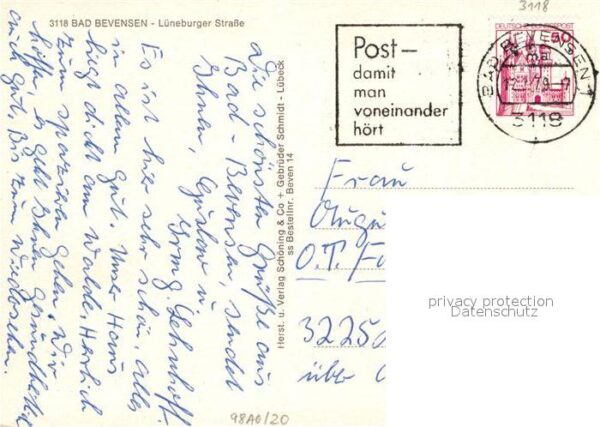 3118
3118 BAD BEVENSEN - Lüneburger Straße
Post –
damit
man
voneinander
hört
DEUTSCHE BUNDESPOST
50
BAD BEVENSEN 1
3118
Die schönsten Grüße aus
Bad - Bevensen, sendet
Ihnen, Gustav u.
Irmg. Lehnhoff.
Es ist hier sehr schön, alles
in allem gut. Unser Haus
liegt dicht am Walde, Herrlich
zum spazieren gehen. Wir
hoffen, es geht Ihnen gesundheitlich
auch gut, Bis zum Wiedersehen.
Herst. u. Verlag Schöning & Co + Gebrüder Schmidt - Lübeck
ss Bestellnr. Beven 14
Frau
Augu
O.T. Fo
3225
über
privacy protection
Datenschutz
98A6/20